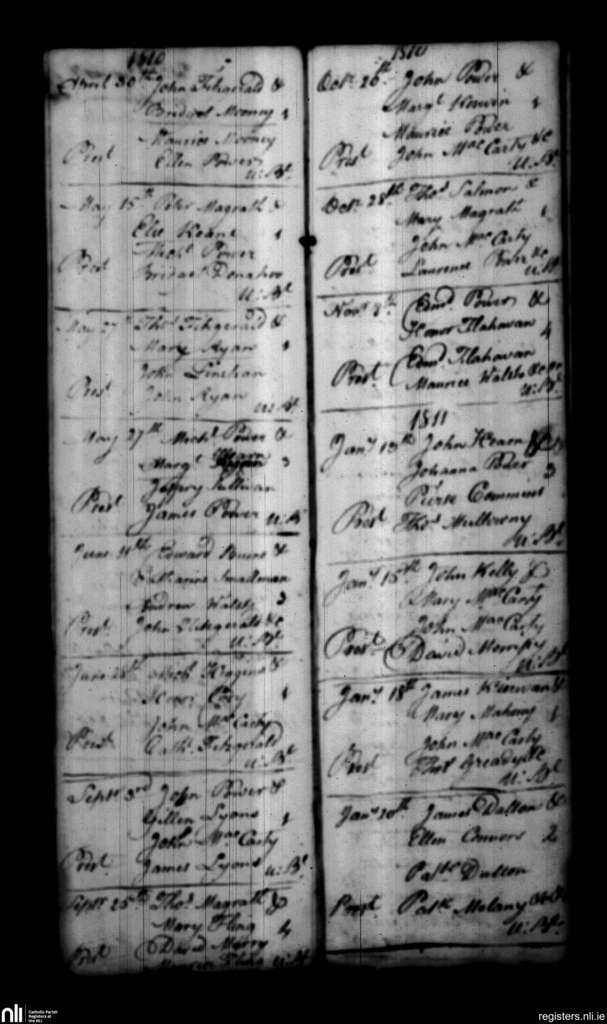 1810
April 30th John Fitzgerald &
Bridget Mooney 1
Maurice Mooney
Prest Ellen Power
U: Bt
May 15th Peter Magrath &
Elie Keane 1
Michl Power
Prest Bridget Donahoe
U: Bt
May 27 Thos Fitzgerald &
Mary Ryan 1
John Linehan
Prest John Ryan
U: Bt
May 27th Michl Power &
Margt 3
Jeffery Sullivan
Prest James Power U: B
June 11th Edward &
Catharine Smallman
Andrew Walsh 3
Prest John Fitzgerald &c
U: Bt
June 28th Michl Higgins &
Honor 1
John MacCarty
Prest Cathe Fitzgerald
U: Bt
Septr 3rd John Power &
Ellen Lyons 1
John MacCarty
Prest James Lyons U: Bt
Septr 25th Thos Magrath &
Mary Fling 4
David Merry
Prest Fling U: Bt
1810
Octr 26th John Power &
Margt Kerwin 1
Maurice Power
Prest John MacCarty &c
U: Bt
Octr 28th Thos Salmon &
Mary Magrath 1
John MacCarty
Prest Laurence Power &c
U: Bt
Novr Edmd Power &
Honor Flahavan 4
Edmd Flahavan
Prest Maurice Walsh &c &c
U: Bt
1811
Jany 13th John Hearn &
Johanna Power 3
Pierse Commins
Prest Thos Mullowny
U: Bt
Jany 15th John Kelly &
Mary MacCarty
John MacCarty
Prest David
U: Bt
Jany 18th James Kierwan &
Mary Mahony 1
John MacCarty
Prest Thos Greedy &c
U: Bt
Jany 20th James Dalton &
Ellen Connors 2
Patk Dalton
Prest Patk Melany &c &c
U: Bt
nli
Catholic Parish
Registers at
the NLI
registers.nli.ie